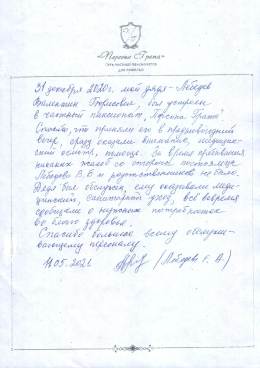 «Персона Грата»
СЕТЬ ЧАСТНЫХ ПАНСИОНАТОВ
ДЛЯ ПОЖИЛЫХ
31 декабря 2020г. мой дядя - Лебедев
Валентин Борисович, был устроен
в частный пансионат „Персона Грата"
Спасибо, что приняли его в предновогодний
вечер, сразу оказали внимание, медицинс-
кий осмотр, помощь. За время пребывания
никаких жалоб со стороны постояльца
Лебедева В.Б и родственников не было.
Дядя был обслужен, ему оказывали меди-
цинский, санитарный уход, всё вовремя
сообщали о нужных потребностях
во благо здоровья.
Спасибо большое всему обслужи-
вающему персоналу.
11.05.2021. (Лебедев Г. А.)